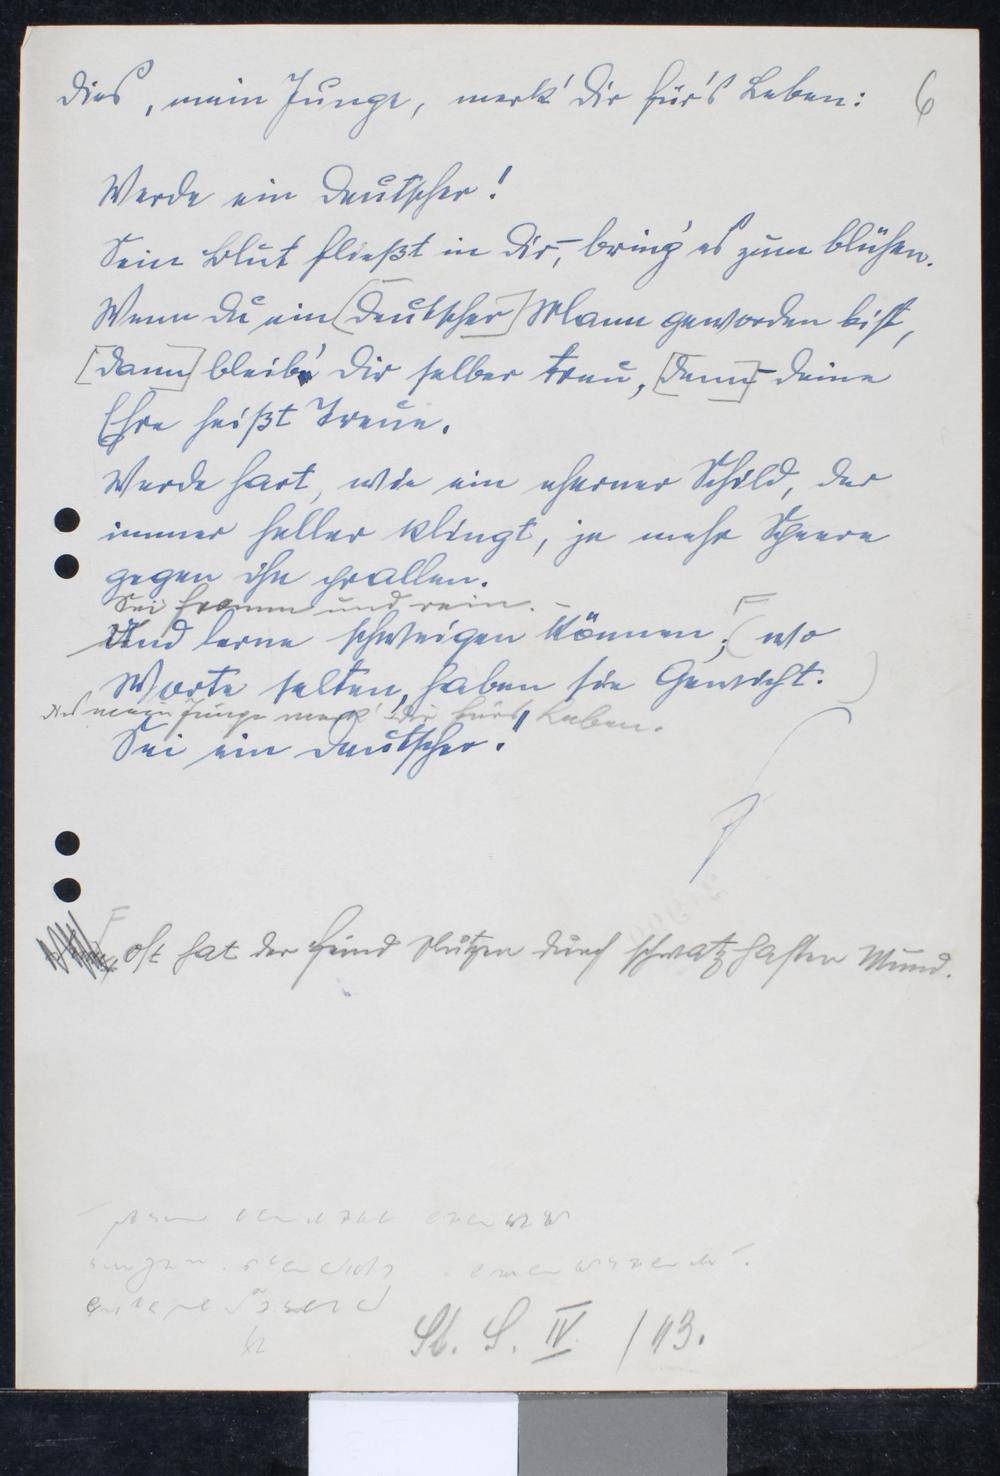 Dies, mein Junge, merk' Dir für's Leben: 6
Werde ein Deutscher!
Sein Blut fließt in Dir, – bring' es zum blühen.
Wenn Du ein [Deutscher] Mann geworden bist,
[dann] bleib' Dir selber treu, [denn] – Deine
Ehre heißt Treue.
Werde hart, wie ein eherner Schild, der
immer heller klingt, je mehr Speere
gegen ihn prallen.
Sei fromm und rein. –
Und lerne schweigen können; (wo
Worte selten, haben sie Gewicht.)
mein Junge merk' Dir fürs Leben.
Sei ein Deutscher!"
F oft hat der Feind Nutzen durch schwatzhaften Mund.
St. S. IV /43.